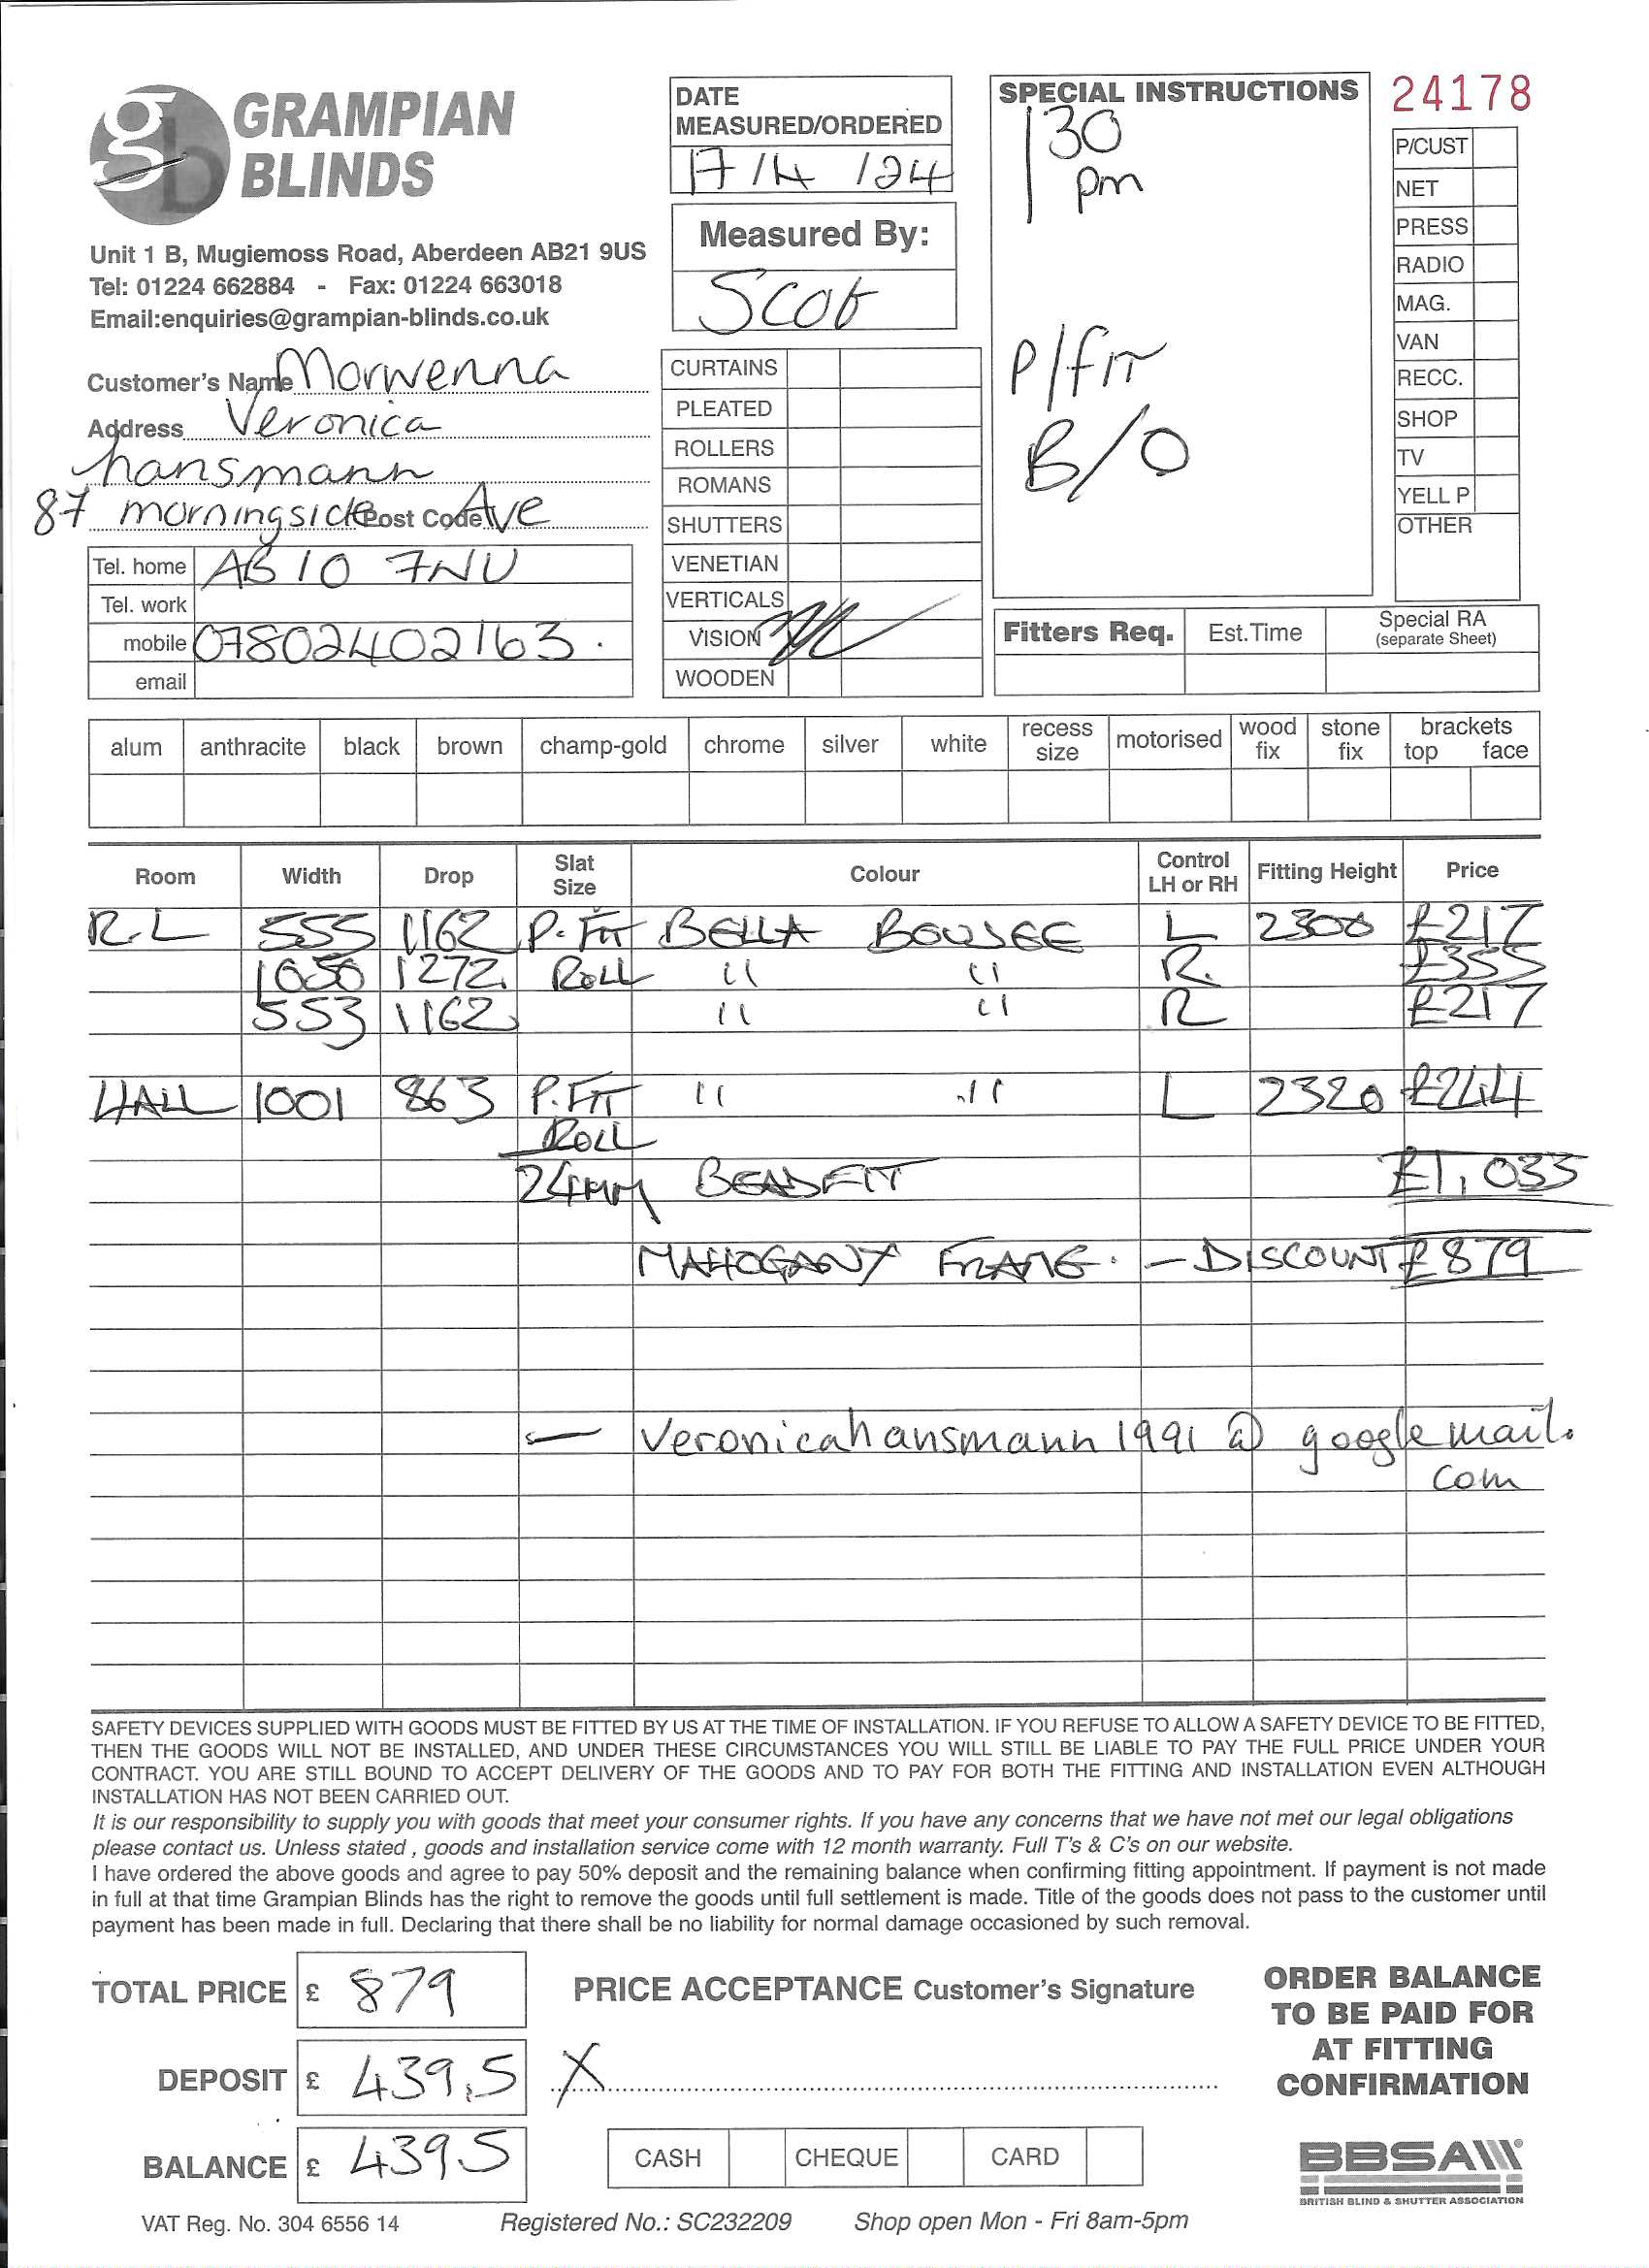 GRAMPIAN
BLINDS
Unit 1 B, Mugiemoss Road, Aberdeen AB21 9US
Tel: 01224 662884 - Fax: 01224 663018
Email:enquiries@grampian-blinds.co.uk
DATE
MEASURED/ORDERED
17/4/24
Measured By:
Scot
SPECIAL INSTRUCTIONS
130
pm
P/FIT
B/O
24178
P/CUST
NET
PRESS
RADIO
MAG.
VAN
RECC.
SHOP
TV
YELL P
OTHER
Customer's Name Morwenna
Address Veronica
hansmann
87 morningside Post Code Ave
Tel. home AB10 7NU
Tel. work
mobile 07802402163.
email
CURTAINS
PLEATED
ROLLERS
ROMANS
SHUTTERS
VENETIAN
VERTICALS
VISION
WOODEN
Fitters Req. Est.Time Special RA
(separate Sheet)
alum anthracite black brown champ-gold chrome silver white recess size motorised wood fix stone fix brackets top face
Room Width Drop Slat Size Colour Control LH or RH Fitting Height Price
R.L 555 1162 P. FIT BELLA BOUJEE L 2300 £217
1050 1272 ROLL " " R. £355
553 1162 " " R £217
HALL 1001 863 P. FIT " " L 2320 £244
ROLL
24MM BEADFIT £1,033
MAHOGANY FRAME. - DISCOUNT £879
- veronicahansmann1991@googlemail.
com
SAFETY DEVICES SUPPLIED WITH GOODS MUST BE FITTED BY US AT THE TIME OF INSTALLATION. IF YOU REFUSE TO ALLOW A SAFETY DEVICE TO BE FITTED,
THEN THE GOODS WILL NOT BE INSTALLED, AND UNDER THESE CIRCUMSTANCES YOU WILL STILL BE LIABLE TO PAY THE FULL PRICE UNDER YOUR
CONTRACT. YOU ARE STILL BOUND TO ACCEPT DELIVERY OF THE GOODS AND TO PAY FOR BOTH THE FITTING AND INSTALLATION EVEN ALTHOUGH
INSTALLATION HAS NOT BEEN CARRIED OUT.
It is our responsibility to supply you with goods that meet your consumer rights. If you have any concerns that we have not met our legal obligations
please contact us. Unless stated , goods and installation service come with 12 month warranty. Full T's & C's on our website.
I have ordered the above goods and agree to pay 50% deposit and the remaining balance when confirming fitting appointment. If payment is not made
in full at that time Grampian Blinds has the right to remove the goods until full settlement is made. Title of the goods does not pass to the customer until
payment has been made in full. Declaring that there shall be no liability for normal damage occasioned by such removal.
TOTAL PRICE £ 879
DEPOSIT £ 439.5
BALANCE £ 439.5
PRICE ACCEPTANCE Customer's Signature
X
CASH CHEQUE CARD
ORDER BALANCE
TO BE PAID FOR
AT FITTING
CONFIRMATION
BBSA
BRITISH BLIND & SHUTTER ASSOCIATION
VAT Reg. No. 304 6556 14 Registered No.: SC232209 Shop open Mon - Fri 8am-5pm